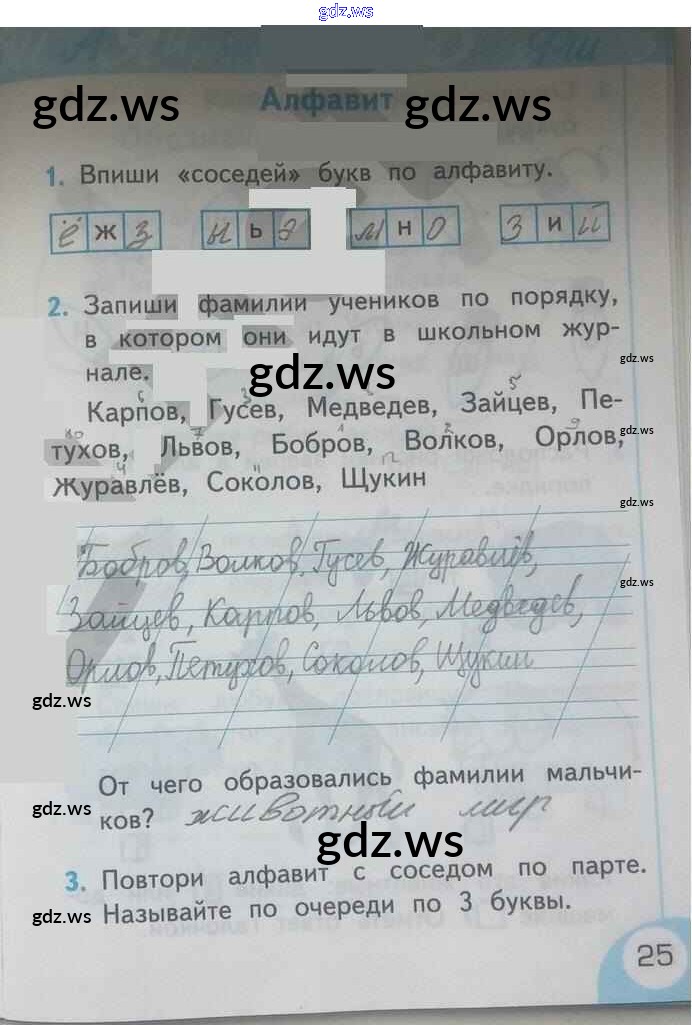 gdz.ws
Алфавит
gdz.ws gdz.ws
1. Впиши «соседей» букв по алфавиту.
ё ж з ы ь э м н о з и й
2. Запиши фамилии учеников по порядку,
в котором они идут в школьном жур-
нале.
gdz.ws
gdz.ws
Карпов, Гусев, Медведев, Зайцев, Пе-
тухов, Львов, Бобров, Волков, Орлов,
gdz.ws
Журавлёв, Соколов, Щукин
gdz.ws
Бобров, Волков, Гусев, Журавлёв,
gdz.ws
Зайцев, Карпов, Львов, Медведев,
Орлов, Петухов, Соколов, Щукин
gdz.ws
gdz.ws
От чего образовались фамилии мальчи-
ков? животный мир
gdz.ws
gdz.ws
3. Повтори алфавит с соседом по парте.
Называйте по очереди по 3 буквы.
gdz.ws
gdz.ws
25